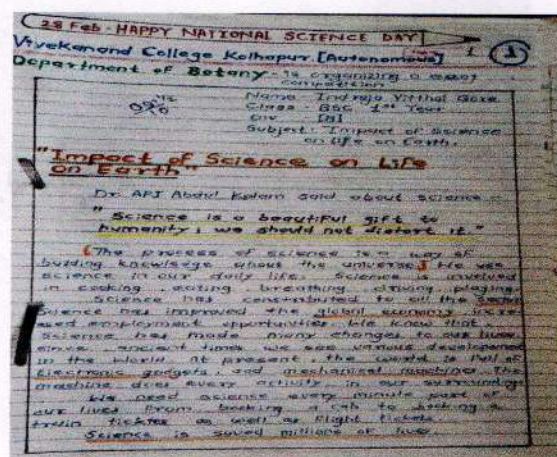 28 Feb - HAPPY NATIONAL SCIENCE DAY
1
Vivekanand College Kolhapur. [Autonomous]
Department of Botany - is organizing a essay
competition
Name - Indraja Vitthal Gore
Class - BSC 1st Year
Div [B]
Subject - Impact of Science
on life on Earth.
"Impact of Science on Life
on Earth"
Dr. APJ Abdul Kalam said about science -
"Science is a beautiful gift to
humanity, we should not distort it."
The process of science is a way of
building knowledge about the universe. We use
science in our daily life. Science is involved
in cooking, eating, breathing, driving, playing.
Science has constributed to all the sector
Science has improved the global economy incre-
ased employment opportunities. We know that
Science has made many changes to our lives
since ancient times. We see various developement
in the world. At present, the world is full of
Electronic gadgets, and mechanical machines. The
machine does every activity in our surroundings
We need science every minute part of
our lives from booking a cab to booking a
train tickets as well as flight tickets.
Science is saved millions of lives.